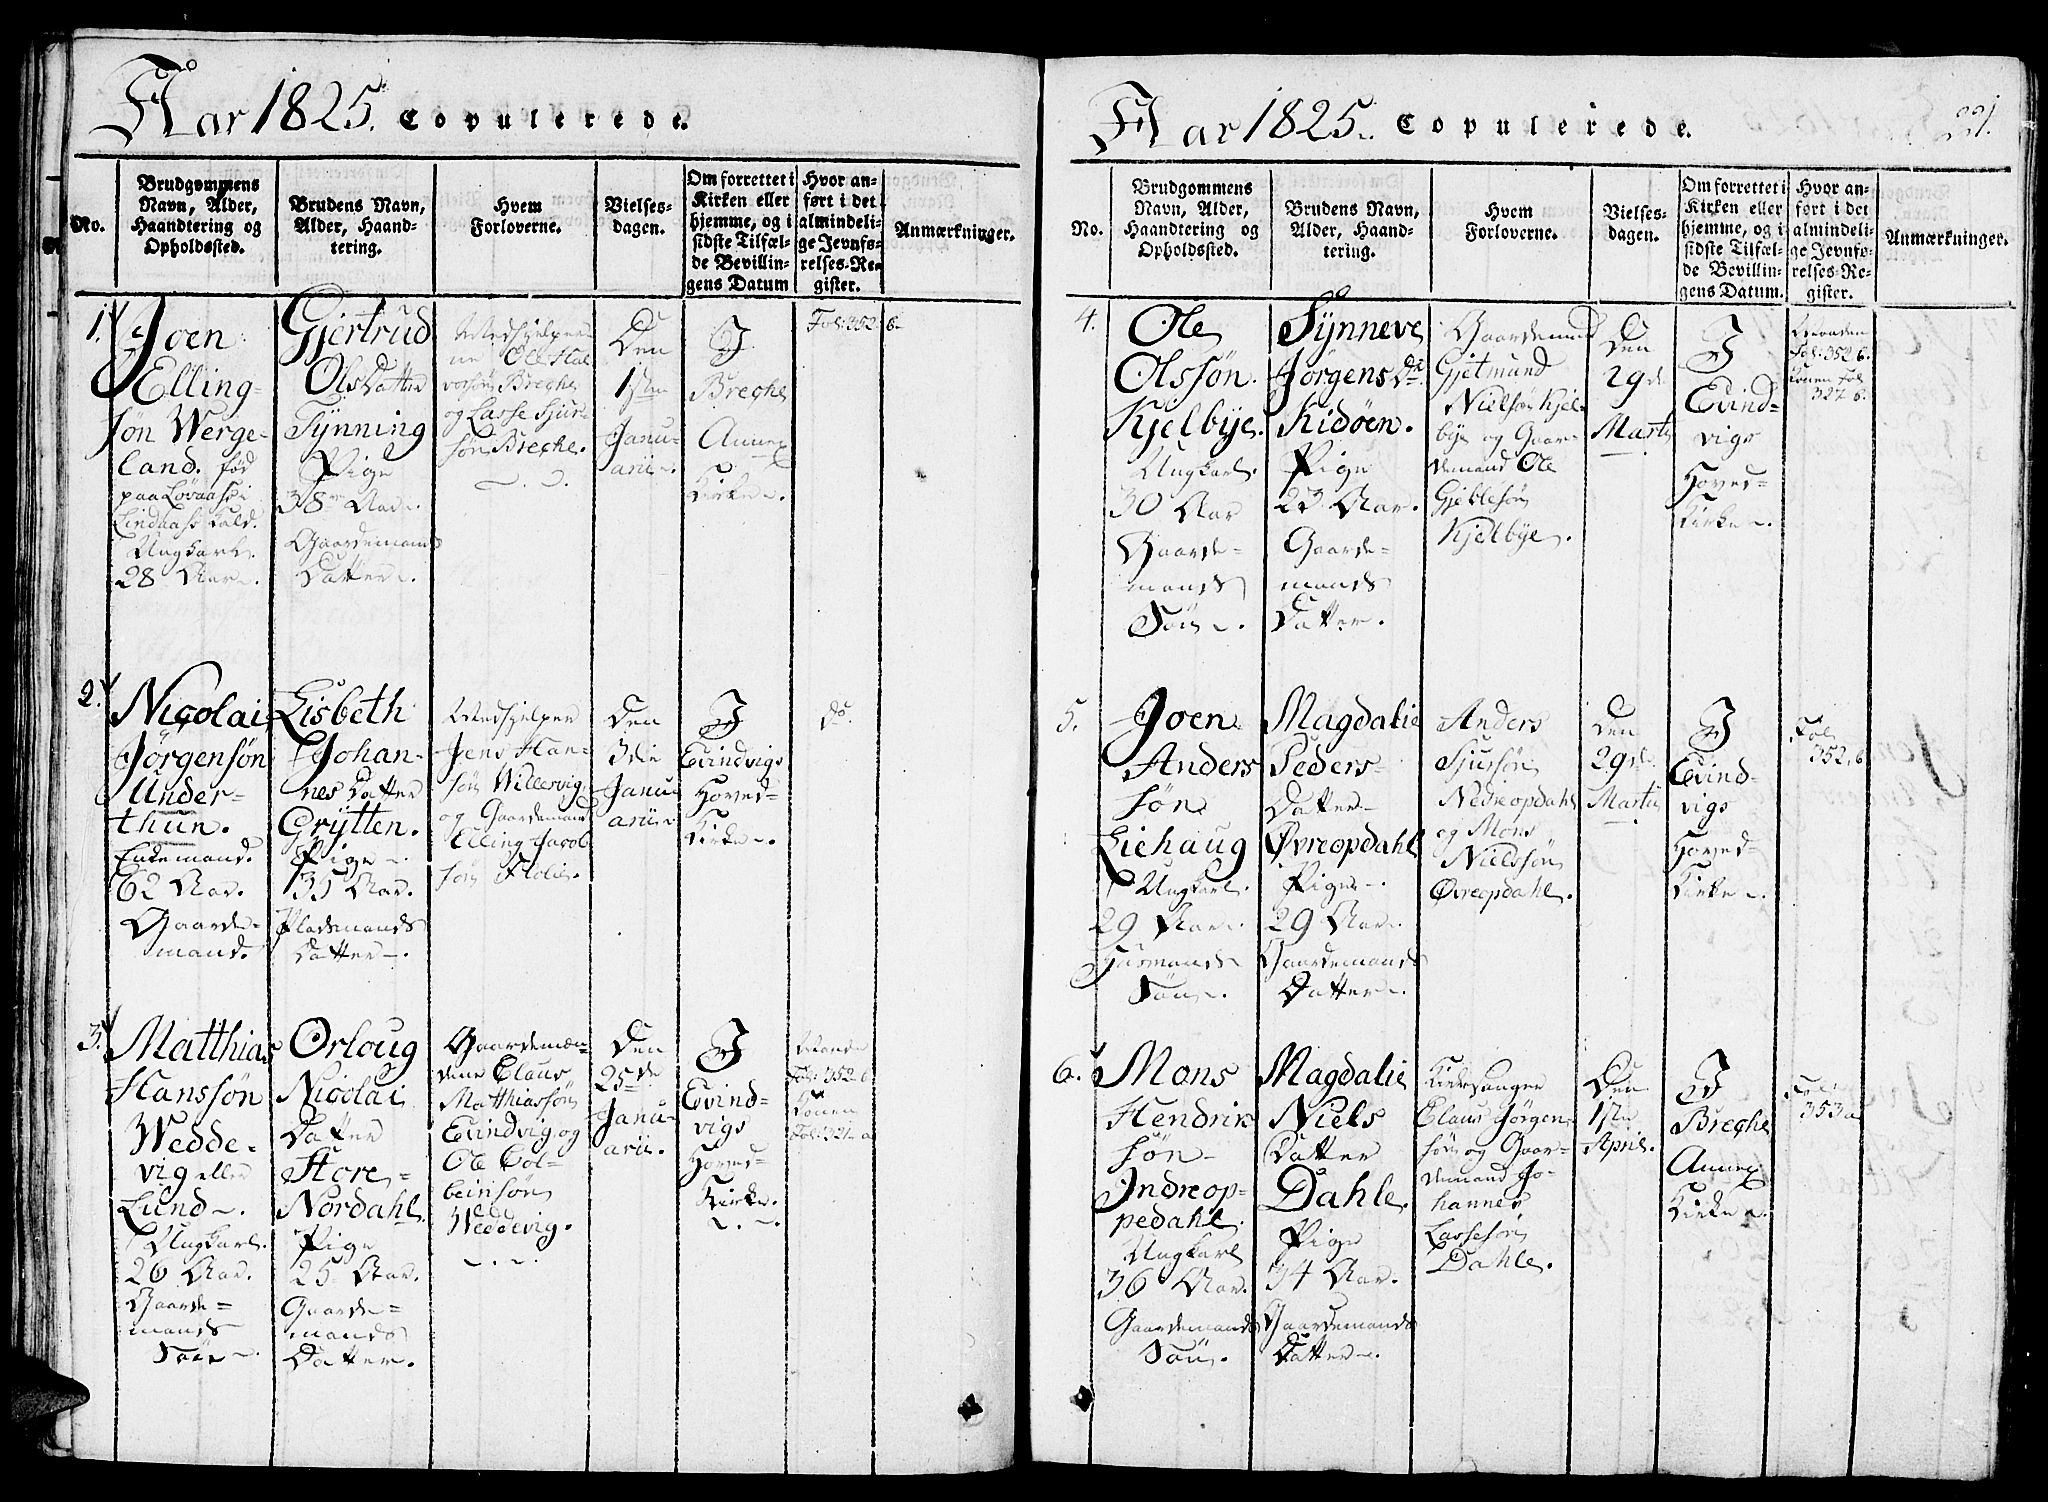 Aar 1825. Copulerede.
No.
Brudgommens
Navn, Alder,
Haandtering og
Opholdssted.
Brudens Navn,
Alder, Haand-
tering.
Hvem
Forloverne.
Vielses-
dagen.
Om forrettet i
Kirken eller
hjemme, og i
sidste Tilfæl-
de Bevillin-
gens Datum
Hvor an-
ført i det
almindeli-
ge Jevnfø-
relses-Re-
gister.
Anmærkninger.
1.
Joen
Elling-
søn Werge-
land. fød
paa Lövaas i
Lindaas Kald.
Ungkarl.
28 Aar.
Gjertrud
Olsdatter
Synning
Pige
38 Aar.
Gaardemands
Datter.
Medhjelper
ne Ole Hal
vorsøn Breche
og Lasse Sjur-
søn Breche.
Den
1sten
Janu-
arii.
I
Breche
Annex
Kirke.
Fol: 352 b.
2.
Nicolai
Jørgensøn
Under-
thun.
Enkemand.
62 Aar.
Gaarde-
mand.
Lisbeth
Johan-
nes Datter
Grytten.
Pige
35 Aar.
Pladsmands
Datter.
Medhjelper
Jens Han-
søn Willervig
og Gaardemand
Elling Jacob
søn Flolie.
Den
3die
Janu-
arii
I
Evindvigs
Hoved-
Kirke.
do.
3.
Matthias
Hanssøn
Wedde-
vig eller
Lund.
Ungkarl.
26 Aar.
Gaarde-
mands
Søn.
Orloug
Nicolai
Datter
Store-
Nordahl.
Pige
25 Aar.
Gaarde-
mands
Datter.
Gaardemæn-
dene Claus
Matthiassøn
Evindvig og
Ole Col-
beinsøn
Weddevig.
Den
25de
Janu-
arii.
I
Evind-
vigs
Hoved-
Kirke.
Fol: 352 b
Konen
Fol: 331 a
Aar 1825. Copulerede.
221.
No.
Brudgommens
Navn, Alder,
Haandtering og
Opholdssted.
Brudens Navn,
Alder, Haand-
tering.
Hvem
Forloverne.
Vielses-
dagen.
Om forrettet i
Kirken eller
hjemme, og i
sidste Tilfæl-
de Bevillin-
gens Datum.
Hvor an-
ført i det
almindeli-
ge Jevnfø-
relses-Re-
gister.
Anmærkninger.
4.
Ole
Olssøn
Kjelbye.
Ungkarl.
30 Aar
Gaarde-
mands
Søn.
Synneve
Jørgens Dr.
Kidøen.
Pige
23 Aar.
Gaarde-
mands
Datter.
Gaardemand
Gjetmund
Nielsøn Kjel-
bye og Gaar-
demand Ole
Gjeblesøn
Kjelbye.
Den
29de
Martii
I
Evind-
vigs
Hoved-
Kirke.
Fol: 352 b.
Konen Fol
327 b.
5.
Joen
Anders
søn
Liehaug
Ungkarl.
29 Aar.
Husmands
Søn.
Magdalie
Peders-
Datter
Øvreopdahl
Pige.
29 Aar.
Gaardemands
Datter.
Anders
Sjursøn
Nedreopdahl
og Mons
Nielssøn
Øvreopdahl.
Den
29de
Martii
I
Evind-
vigs
Hoved-
Kirke.
Fol
352, b
6.
Mons
Hendrik
søn
Indreop-
pedahl.
Ungkarl
36 Aar.
Gaardemands
Søn.
Magdalie
Niels
Datter
Dahle.
Pige
34 Aar.
Gaardemands
Datter.
Kirkesanger
Claus Jørgen-
søn og Gaar-
demand Jo-
hannes
Lassesøn
Dahle.
Den
1ste
April.
I
Breche
Annex
Kirke.
353 a